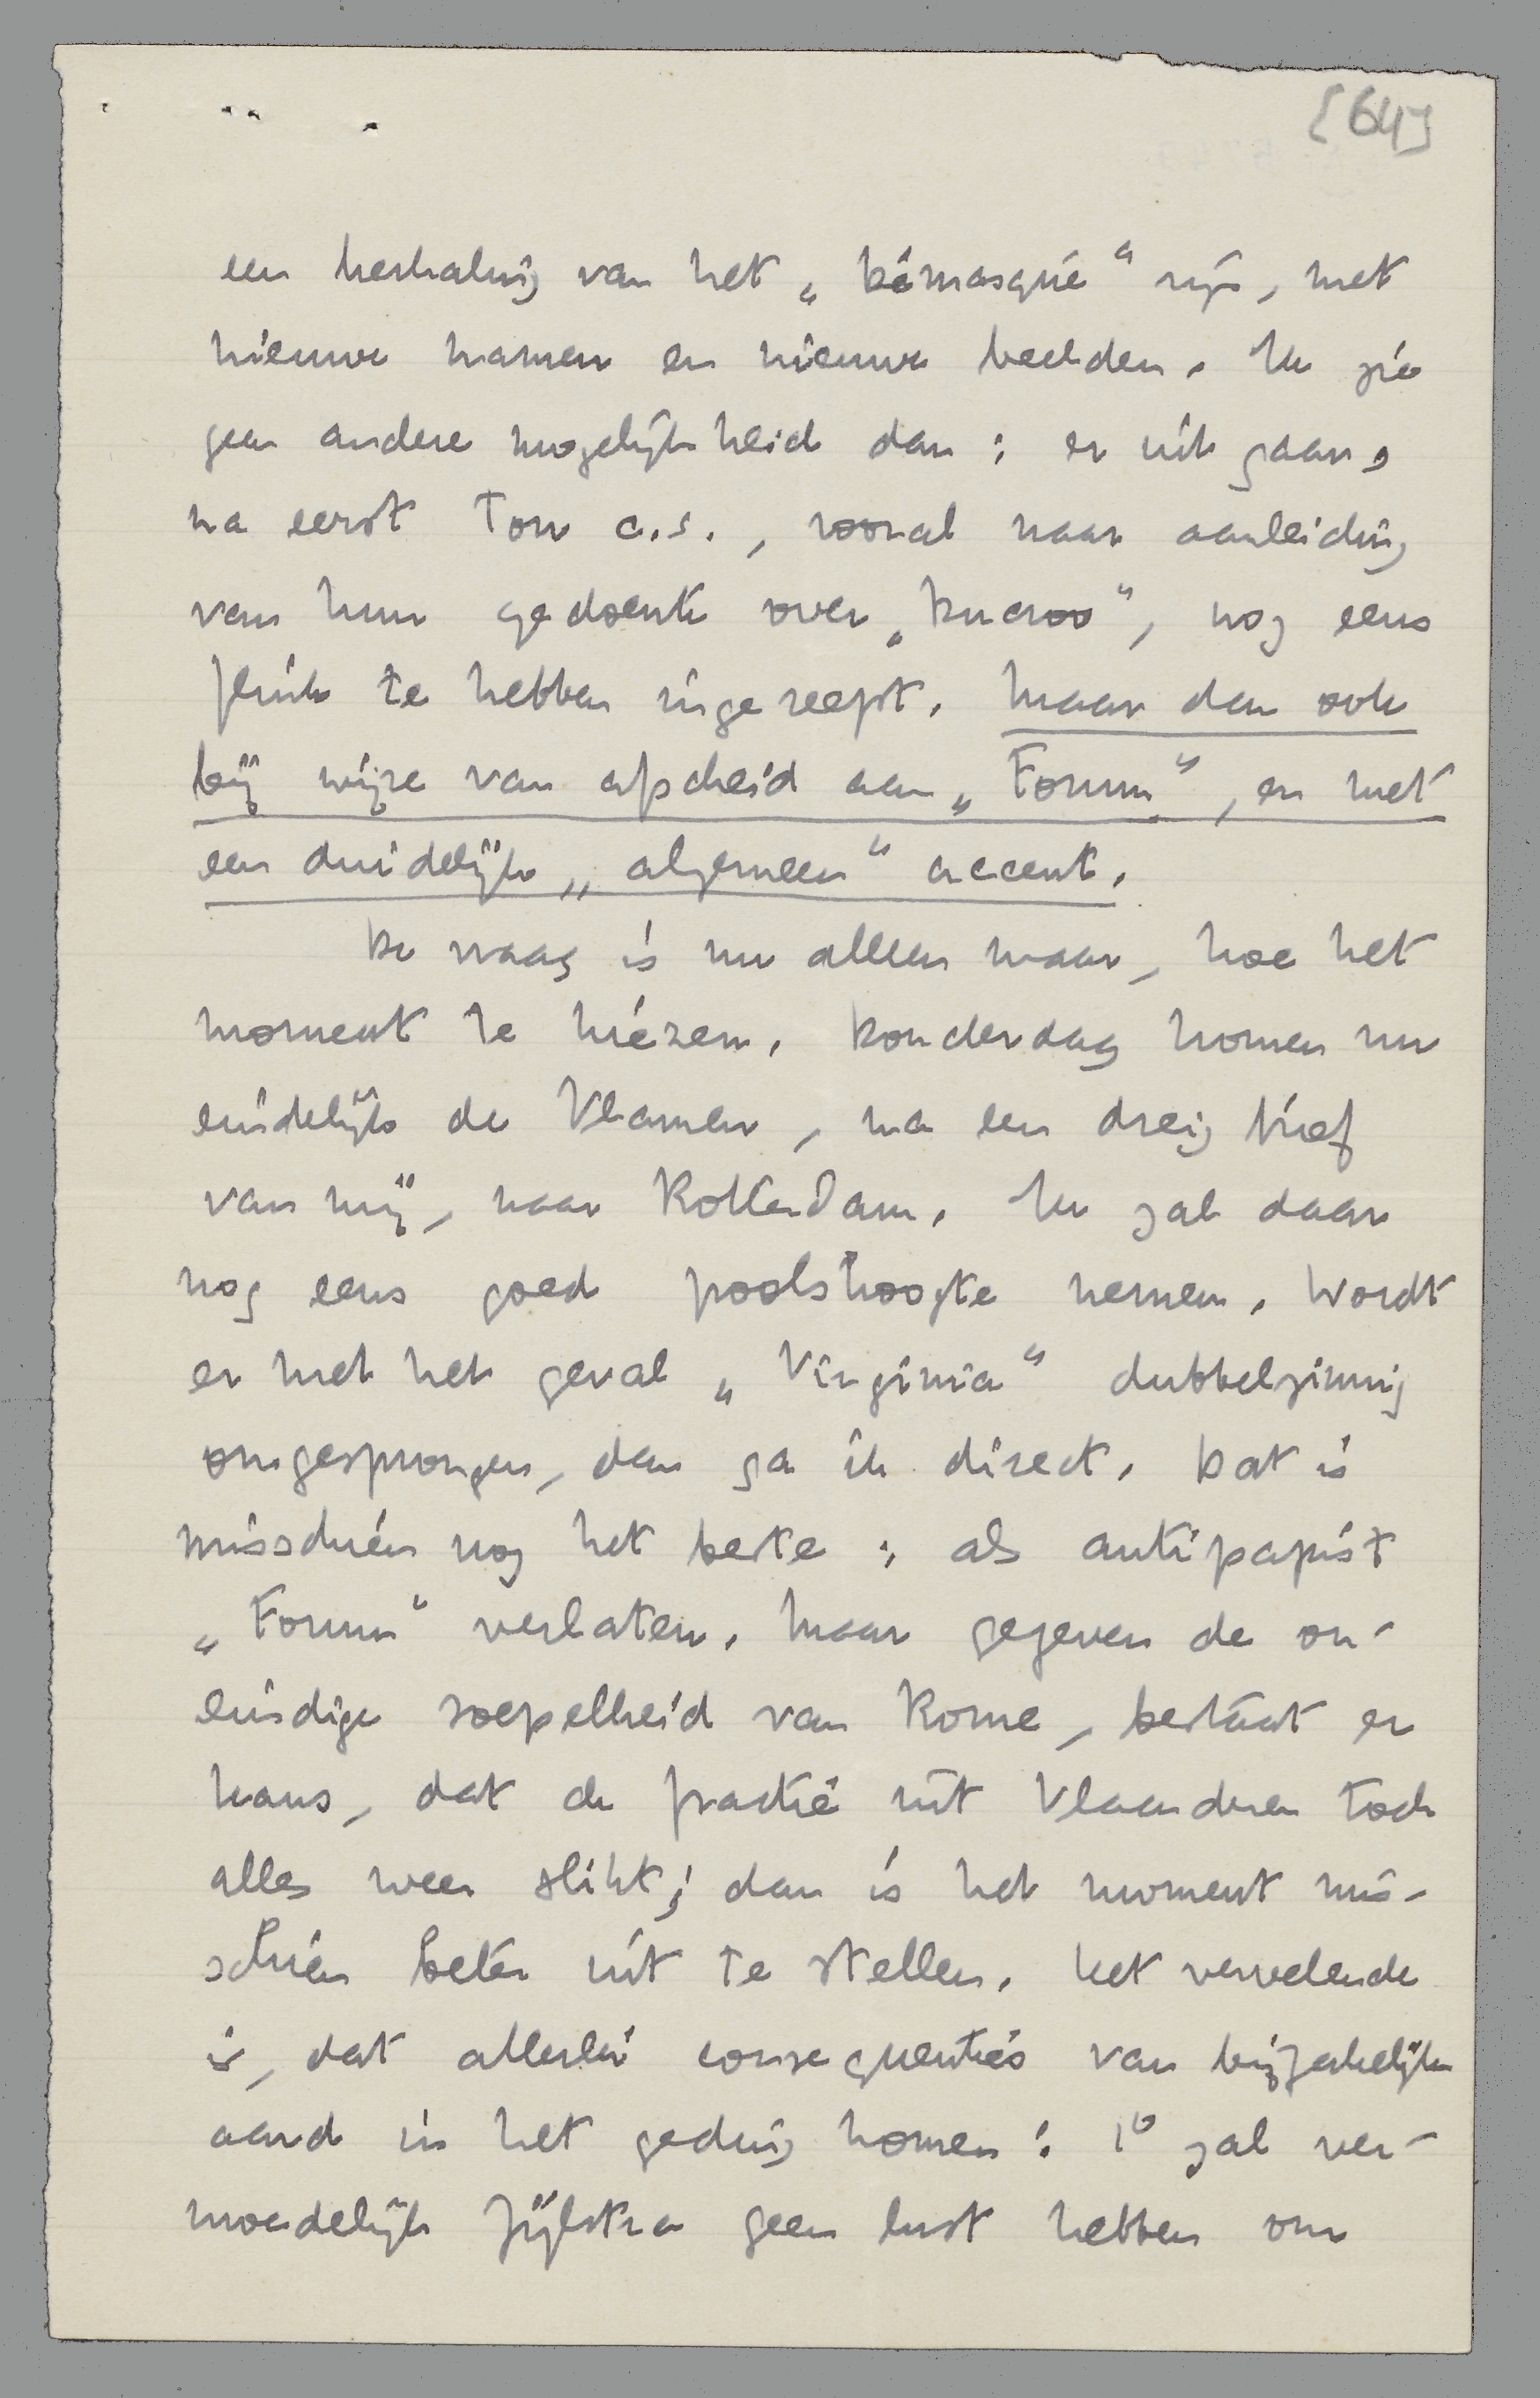 [64]
een herhaling van het „Démasqué" zijn, met
nieuwe namen en nieuwe beelden. Ik zie
geen andere mogelijkheid dan: er uit gaan,
na eerst Tom c.s., vooral naar aanleiding
van hun gedoente over „Ducroo", nog eens
flink te hebben ingezeept. Maar dan ook
bij wijze van afscheid aan „Forum", en met
een duidelijk „algemeen" accent.
De vraag is nu alleen maar, hoe het
moment te kiezen. Donderdag komen nu
eindelijk de Vlamen, na een dreigbrief
van mij, naar Rotterdam. Ik zal daar
nog eens goed poolshoogte nemen. Wordt
er met het geval „Virginia" dubbelzinnig
omgesprongen, dan ga ik direct. Dat is
misschien nog het beste: als antipapist
„Forum" verlaten. Maar gegeven de on-
eindige soepelheid van Rome, bestaat er
kans, dat de fractie uit Vlaanderen toch
alles weer slikt; dan is het moment mis-
schien beter uit te stellen. Het vervelende
is, dat allerlei consequenties van bijzakelijken
aard in het geding komen: 1º zal ver-
moedelijk Zijlstra geen lust hebben om